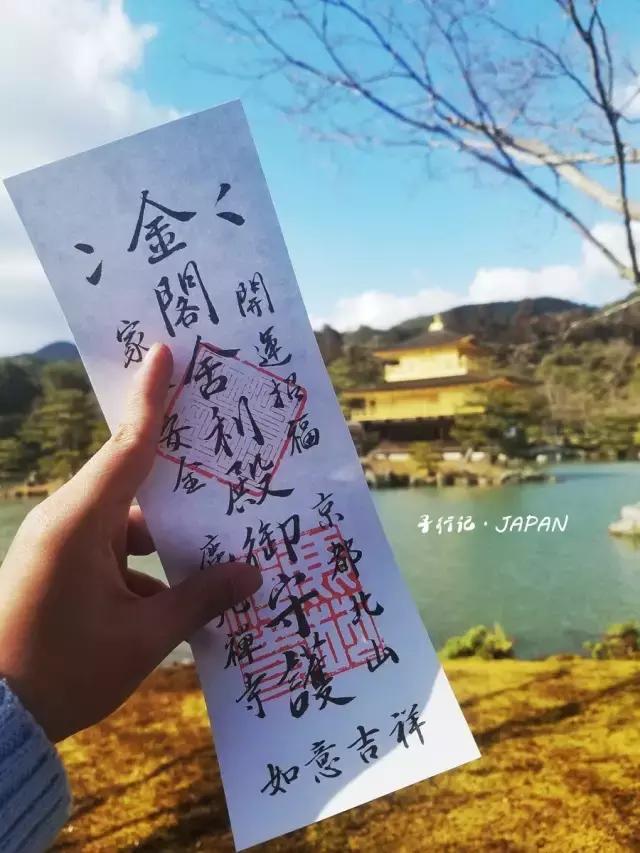 開運招福
京都北山
金閣舍利殿御守護
家安全
鹿禪寺
如意吉祥
行记·JAPAN